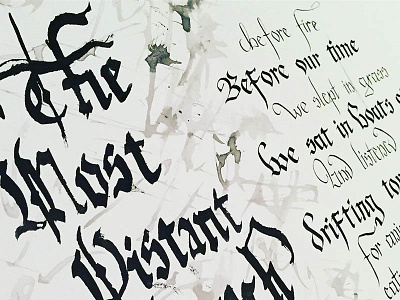 The
Most
Distant
Before fire
Before our time
We slept in grass
We sat in boats
And listened
drifting
For